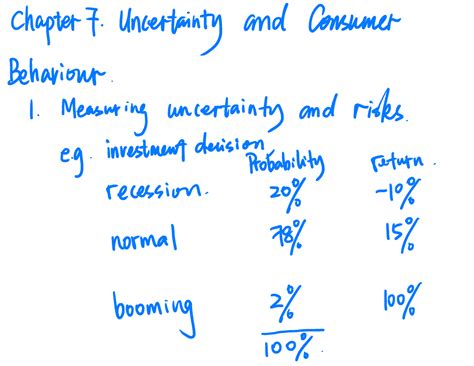 Chapter 7. Uncertainty and Consumer
Behaviour.
1. Measuring uncertainty and risks.
e.g. investment decision
Probability return.
recession. 20% -10%
normal 78% 15%
booming 2% 100%
100%.